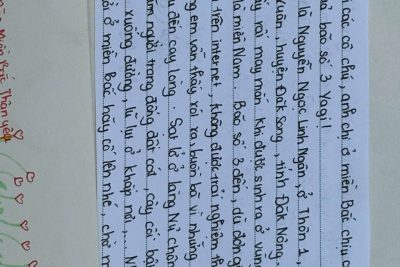 các cô chú, anh chị ở miền Bắc chịu
bão số 3 Yagi!
là Nguyễn Ngọc Linh Ngân, ở Thôn 1,
Xuân, huyện Đắk Song, tỉnh Đắk Nông.
rất may mắn khi được sinh ra ở vùng
là miền Nam... Bão số 3 đến, dù
trên internet, không được trải nghiệm
em vẫn thấy xót xa, buồn bã vì những
đến cay lòng... Sạt lở ở làng Nủ chôn
người trong đống đất cát, cây cối
xuống đường, lũ lụt ở khắp nơi,...
ở miền Bắc hãy cố lên nhé, chờ
Miền Bắc Thân yêu